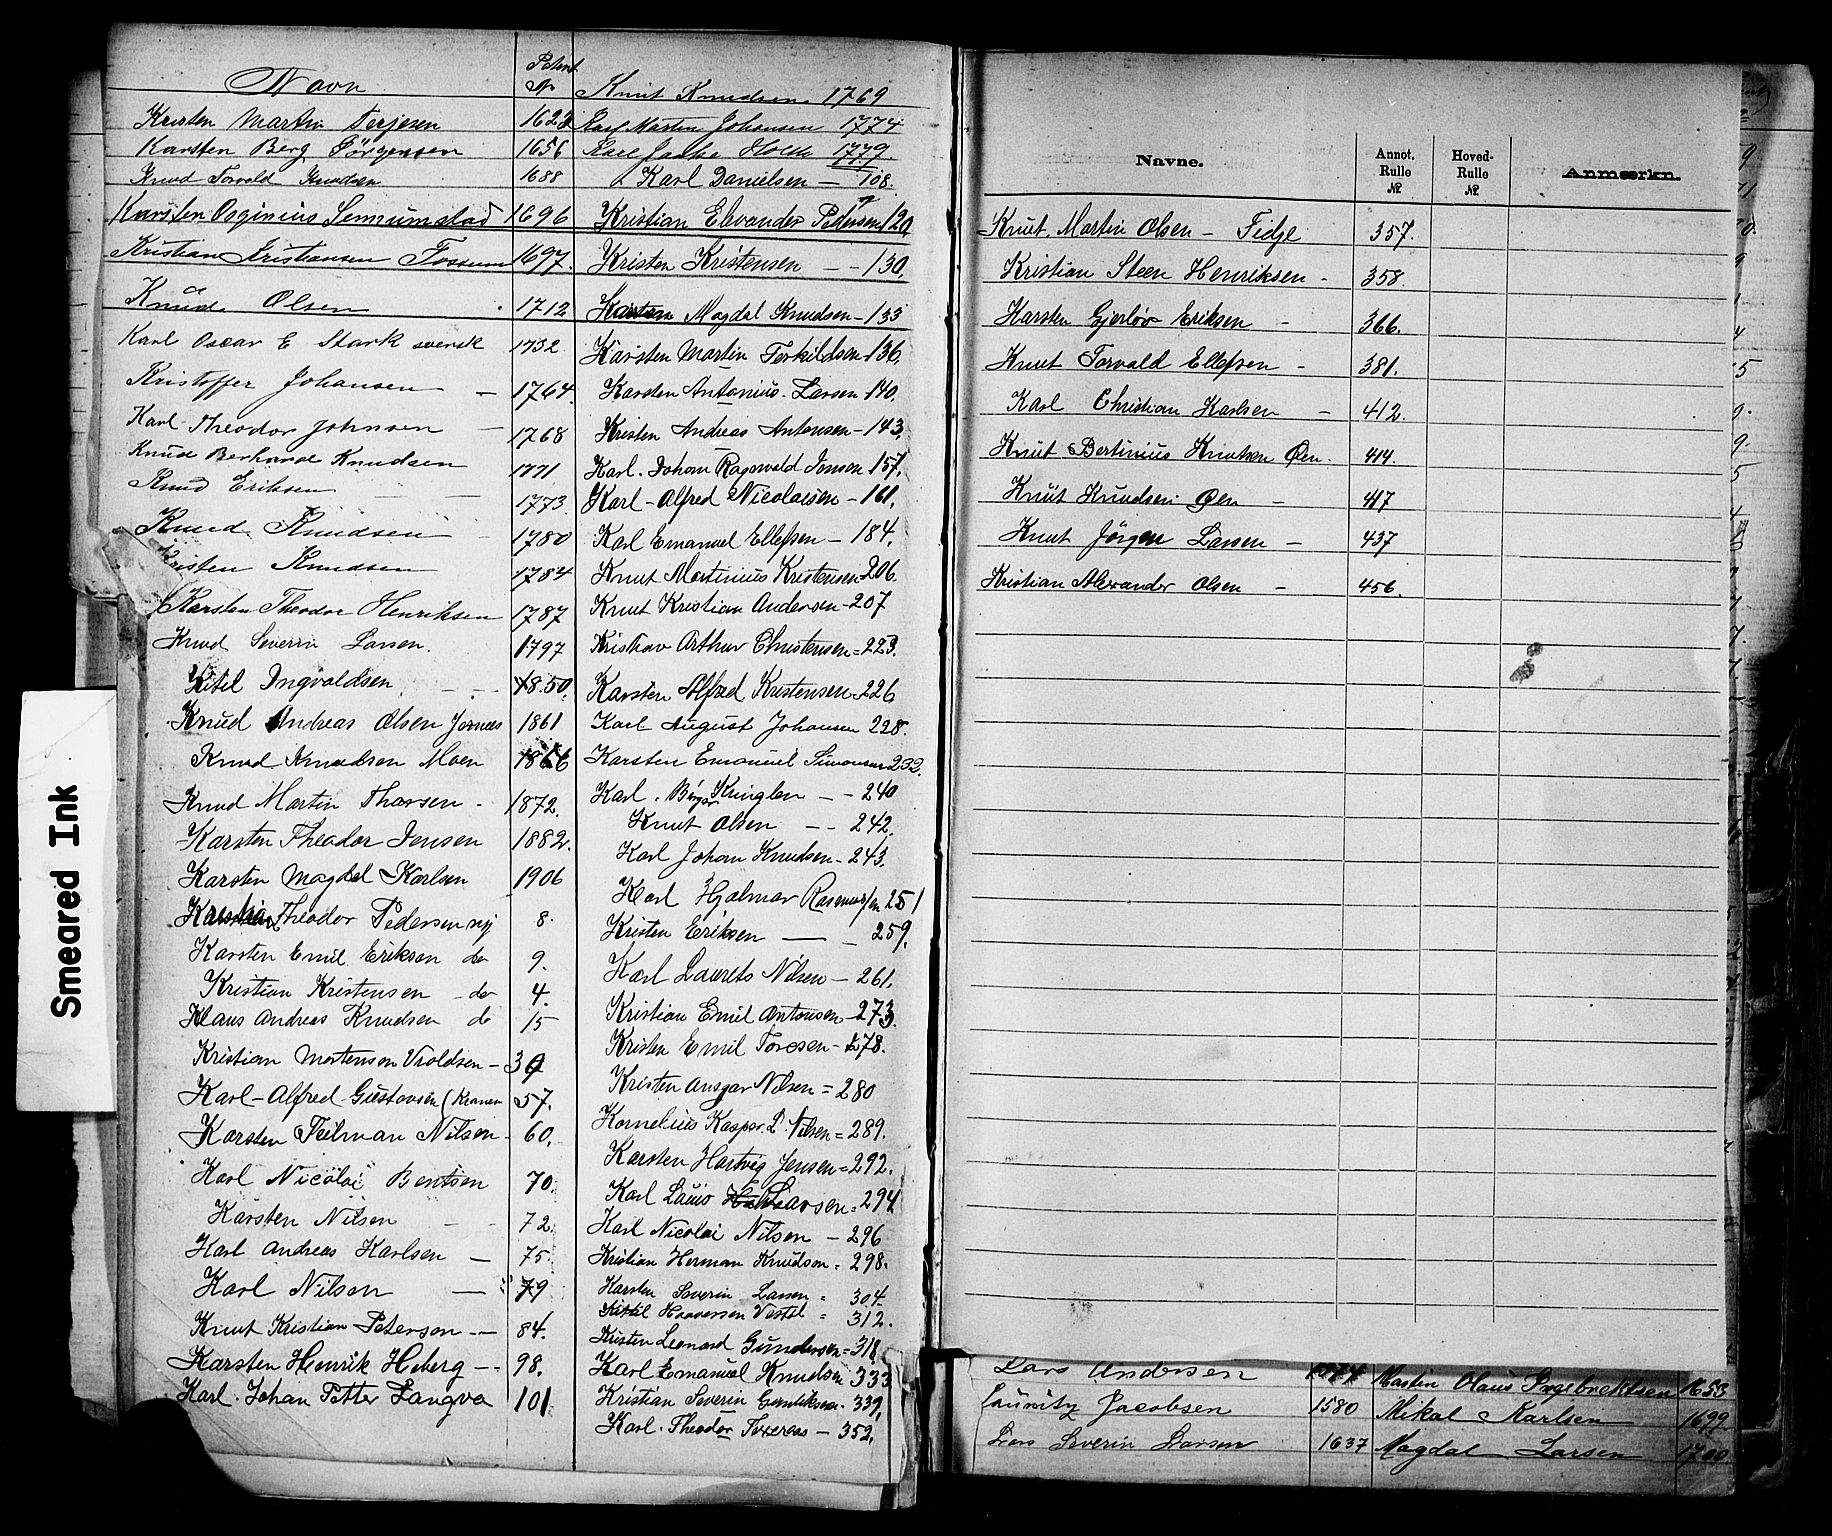 Smeared Ink
Navn
Patent
No
Kristen Martin Terjesen 1622
Karsten Berg Jörgensen 1656
Knud Torvald Knudsen 1688
Karsten Osginius 1696
Kristian Kristiansen Fossum 1697.
Knud Olsen 1712
Karl Oscar E Stark svensk 1732
Kristoffer Johansen — 1764.
Karl Theodor Johnsen — 1768
Knud Berhard Knudsen 1771
Knud Eriksen — 1773.
Knud Knudsen 1780
Kristen Knudsen 1784
Karsten Theodor Henriksen 1787
Knud Severin Larsen. 1797
Kitil Ingvoldsen 1850.
Knud Andreas Olsen 1861
Knud Knudsen Moen 1866
Knud Martin Thorsen - 1872.
Karsten Theodor Jensen 1882.
Karsten Magdal Karlsen 1906
Theodor Pedersen ny 8.
Karsten Emil Eriksen do 9.
Kristian Kristensen - do 4.
Klaus Andreas Knudsen do 15
Kristian Mortensen 39
Karl-Alfred Gustavsen (Kranen 57.
Karsten Teilman Nilsen - 60.
Karl Nicolai Bentsen 70.
Karsten Nilsen 72.
Karl Andreas Karlsen — 75.
Karl Nilsen — 79
Knut Kristian Peterson — 84.
Karsten Henrik Heberg — 98.
Karl. Johan Petter Langva 101
Knut Knudsen. 1769
Karl Martin Johansen 1774
Karl Holm 1779.
Karl Danielsen — 108.
Kristian Elevander Pedersen 120
Kristen Kristensen — 130.
Karsten Magdal Knudsen - 133
Karsten Martin Terkildsen 136.
Karsten Antonius. Larsen 140.
Kristen Andreas Antonsen - 143.
Karl. Johan Ragnvald Jensen 157.
Karl - Alfred Nicolaisen - 161.
Karl Emanuel Ellefsen - 184.
Knut Martinius Kristensen 206.
Knut Kristian Andersen - 207
Kristian Arthur Christensen = 223.
Karsten Alfred Kristensen - 226
Karl August Johansen 228.
Karsten Emanuel Simonsen 232.
Karl. Birger Kringlen — 240
Knut Olsen — 242.
Karl Johan Knudsen - 243.
Karl Hjalmar Rasmussen 251
Kristen Eriksen — 259.
Karl Laurits Nilsen - 261.
Kristian Emil Antonsen - 273.
Kristen Emil Toresen - 278.
Kristen Ansgar Nilsen = 280
Kornelius Kasper L. Nilsen = 289.
Karsten Hartvig Jensen = 292.
Karl Larsen = 294
Karl Nicolai Nilsen - 296
Kristian Herman Knudsen = 298.
Karsten Severin Larsen = 304.
Kittil Vestøl = 312.
Kristen Leonard Gundersen = 318
Karl Emanuel Knudsen 333
Kristian Severin 339.
Karl. Theodor - 352.
Navne. Annot. Rulle № Hoved-Rulle № Anmærkn.
Knut. Martin Olsen - Fidje 357.
Kristian Steen Henriksen - 358.
Karsten Gjerløv Eriksen - 366.
Knut Torvald Ellefsen - 381.
Karl Christian Karlsen - 412.
Knut Bertinius Knutsen Øen. 414.
Knut Knudsen Øen - 417
Knut Jörgen Larsen - 437
Kristian Alexander Olsen - 456.
Lars Andersen 1574 Martin Olaus Ingebrektsen 1653
Lauritz Jacobsen 1580 Mikal Karlsen 1699
Lars Severin Larsen 1637 Magdal Larsen 1700